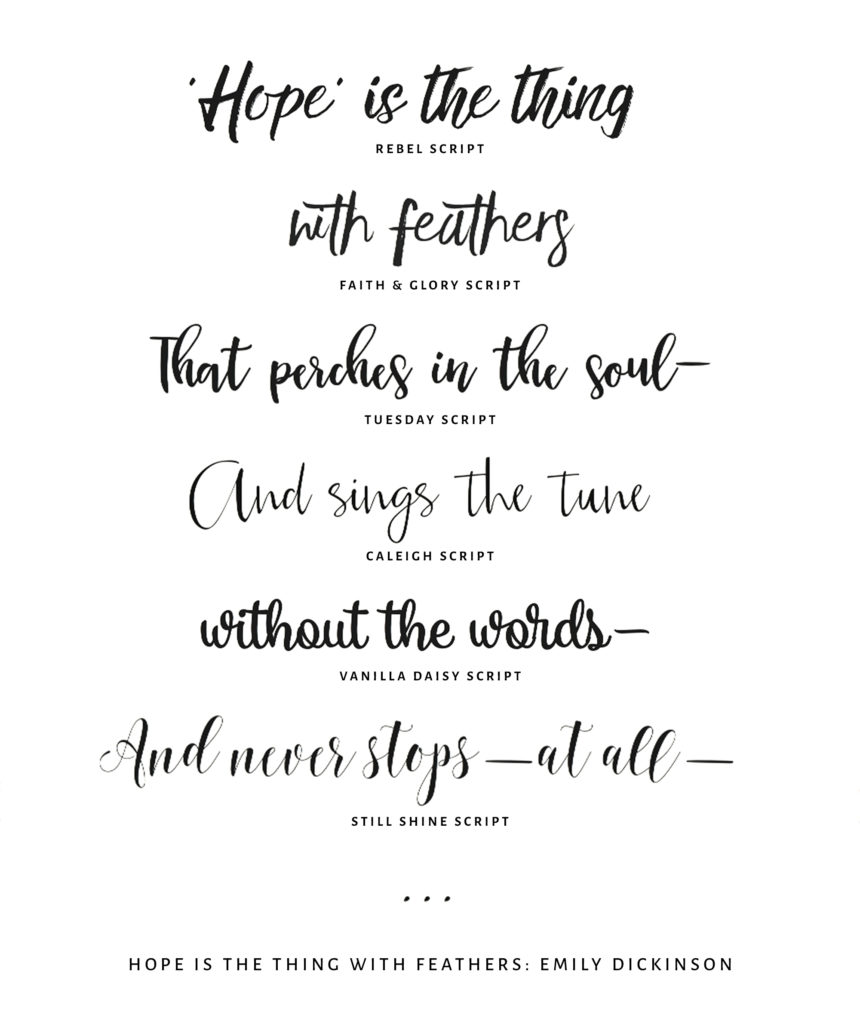 'Hope' is the thing
REBEL SCRIPT
with feathers
FAITH & GLORY SCRIPT
That perches in the soul—
TUESDAY SCRIPT
And sings the tune
CALEIGH SCRIPT
without the words—
VANILLA DAISY SCRIPT
And never stops —at all—
STILL SHINE SCRIPT
...
HOPE IS THE THING WITH FEATHERS: EMILY DICKINSON